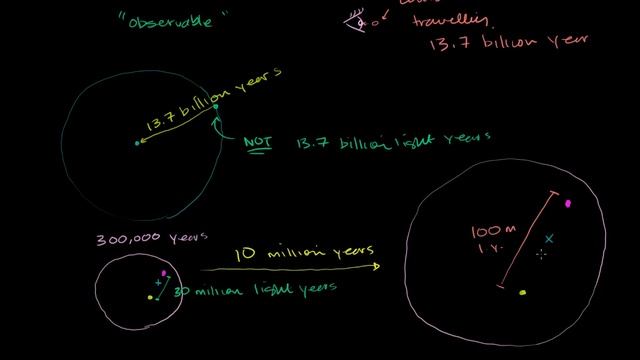 "observable"
travelling
13.7 billion year
13.7 billion years
NOT 13.7 billion light years
300,000 years
10 million years
30 million light years
100 m
l.y.
x